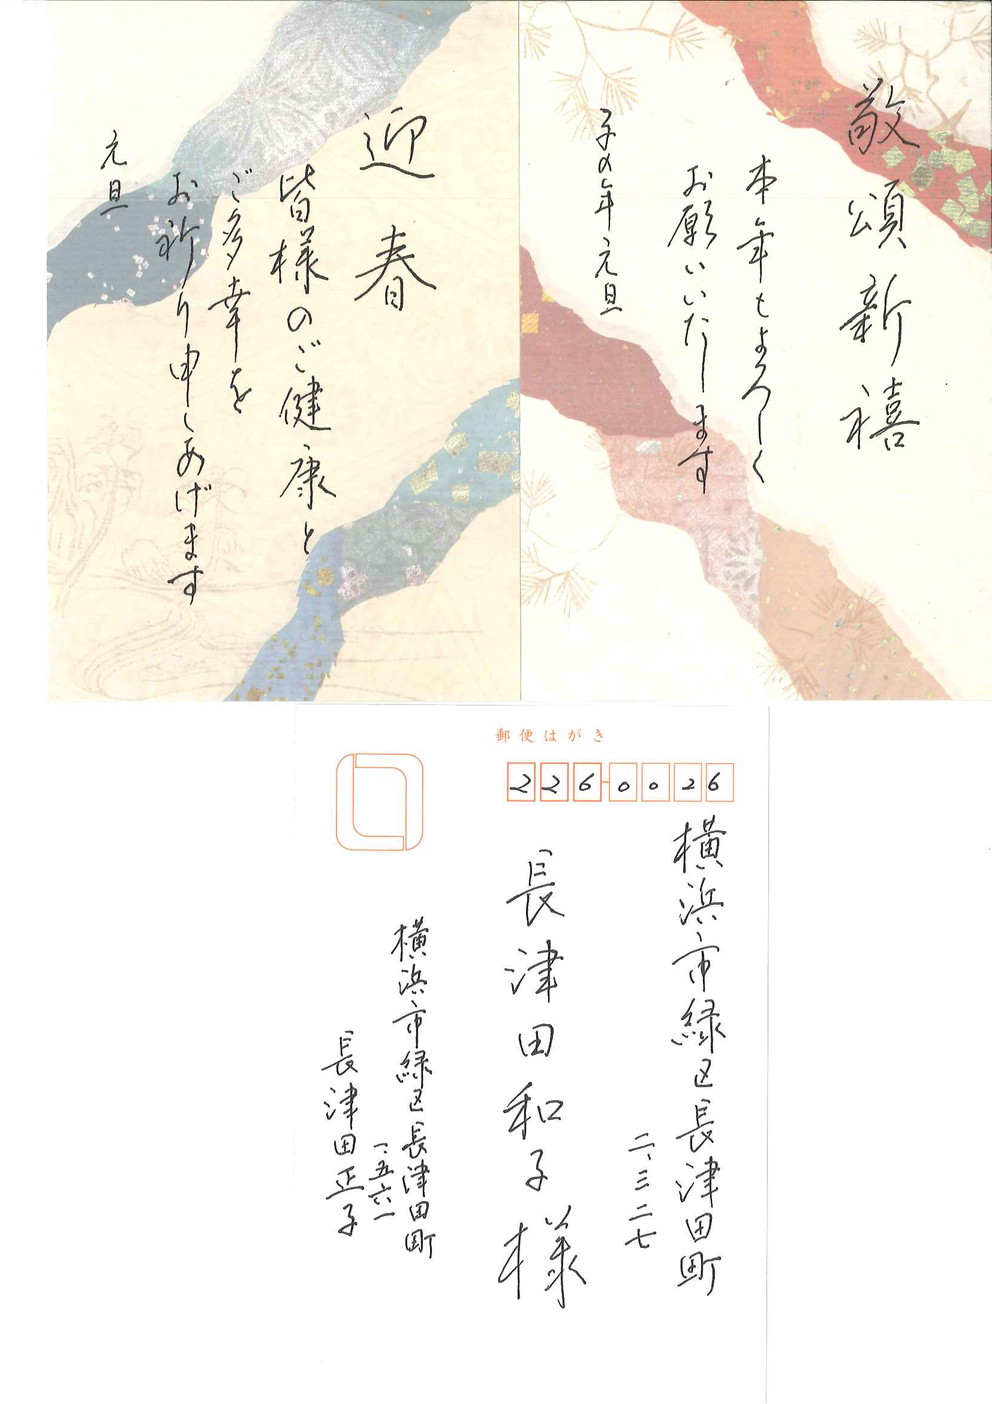 敬頌新禧
本年もよろしく
お願いいたします
子の年元旦
迎春
皆様のご健康と
ご多幸を
お祈り申しあげます
元旦
郵便はがき
226-0026
横浜市緑区長津田町
二、三二七
長津田和子様
横浜市緑区長津田町
一、五六一
長津田正子